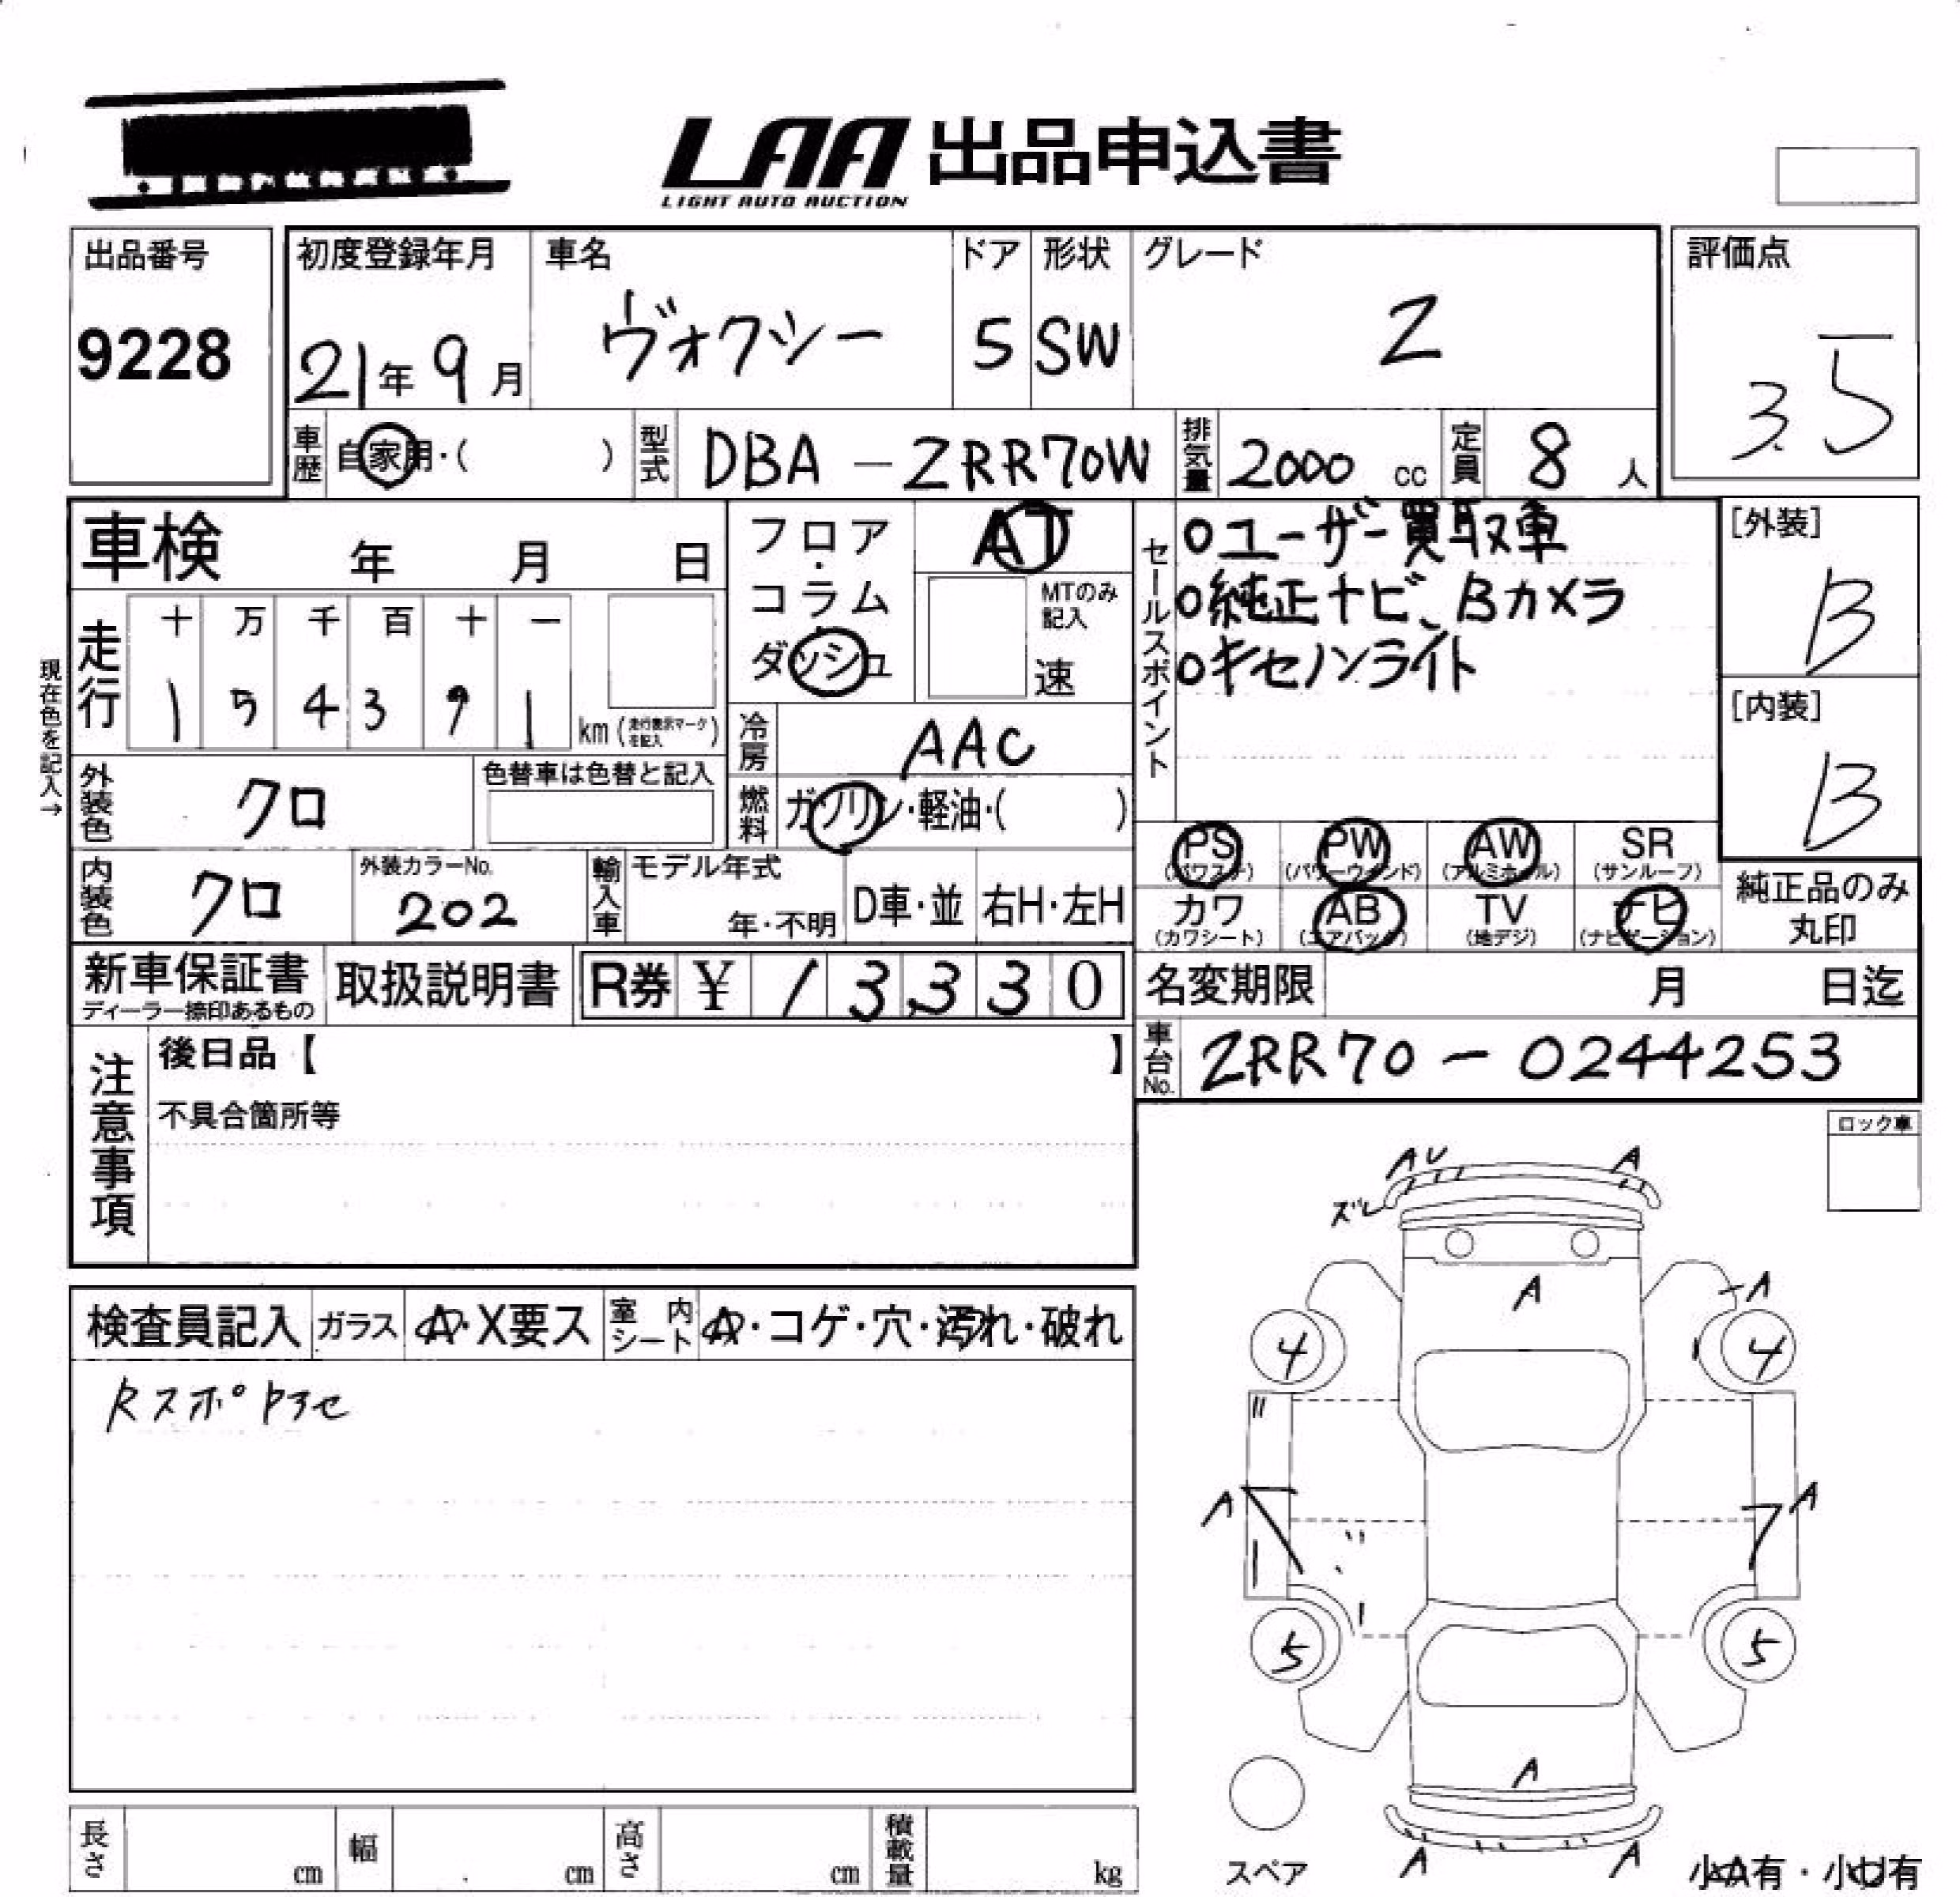 LAA 出品申込書
LIGHT AUTO AUCTION
出品番号
9228
初度登録年月
21年 9月
車名
ヴォクシー
ドア
5
形状
SW
グレード
Z
評価点
3.5
車歴
自家用・( )
型式
DBA - ZRR70W
排気量
2000 cc
定員
8 人
車検 年 月 日
現在色を記入→
走行
十 万 千 百 十 一
1 5 4 3 9 1
km (走行表示マークを記入)
フロア・コラム・ダッシュ
AT
MTのみ記入
速
冷房
AAC
燃料
ガソリン・軽油・( )
外装色
クロ
色替車は色替と記入
内装色
クロ
外装カラーNo.
202
輸入車
モデル年式
年・不明
D車・並
右H・左H
新車保証書
ディーラー捺印あるもの
取扱説明書
R券 ¥ 13330
セールスポイント
○ユーザー買取車
○純正ナビ、Bカメラ
○キセノンライト
[外装]
B
[内装]
B
PS (パワステ)
PW (パワーウィンド)
AW (アルミホイル)
SR (サンルーフ)
カワ (カワシート)
AB (エアバック)
TV (地デジ)
ナビ (ナビゲーション)
純正品のみ丸印
名変期限 月 日迄
車台No.
ZRR70 - 0244253
注意事項
後日品【 】
不具合箇所等
ロック車
検査員記入
ガラス
A・X要ス
室内シート
A・コゲ・穴・汚れ・破れ
Rスポ
AU
A
ズレ
A
A
4
4
A
A
5
5
A
A
A
スペア
小A有・小U有
長さ cm
幅 cm
高さ cm
積載量 kg